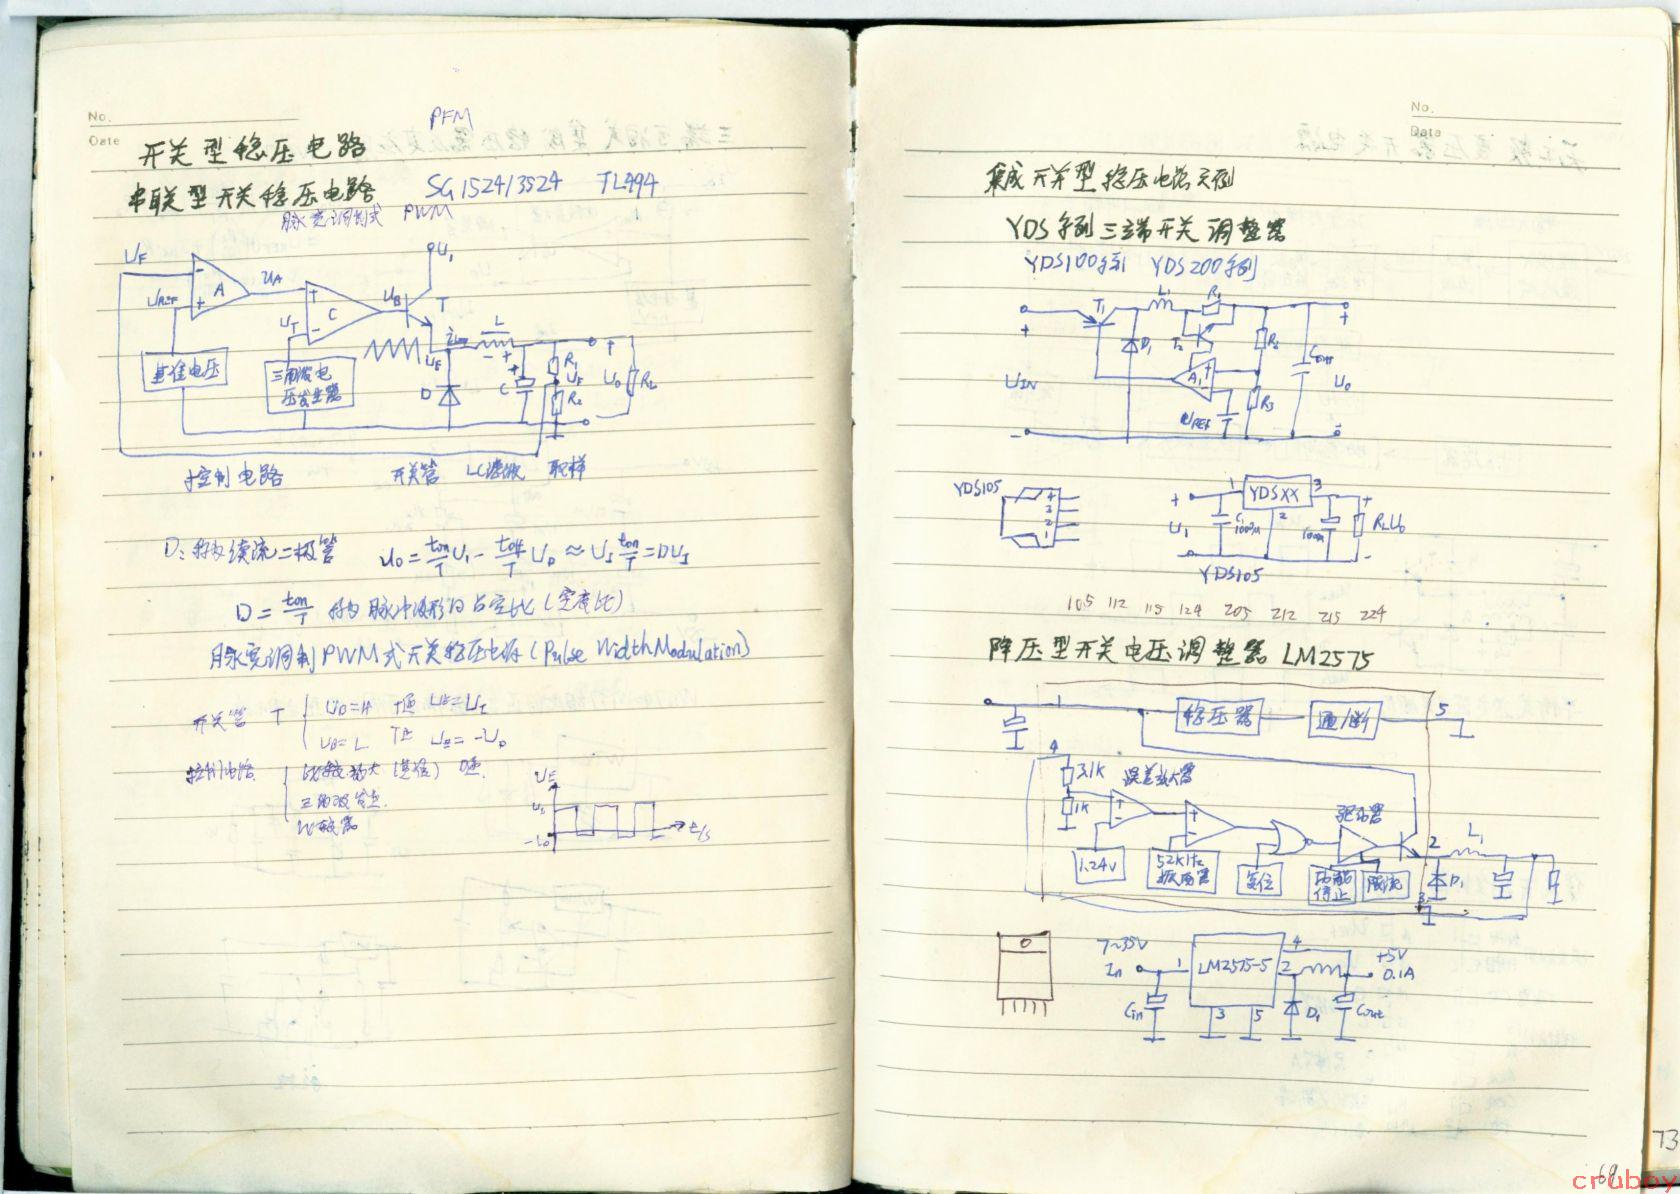 No.
Date
PFM
开关型稳压电路
串联型开关稳压电路 SG1524/3524 TL494
脉宽调制式 PWM
UF
UREF
A
UA
UT
C
UB
T
UI
UE
iL
L
D
C
R1
UF
R2
UO
RL
基准电压
三角波电
压发生器
控制电路 开关管 LC滤波 取样
D:称为续流二极管 UO=ton/T UI-toff/T UD≈UI ton/T=DUI
D=ton/T 称为脉冲波形的占空比(空度比)
脉宽调制PWM式开关稳压电源(Pulse Width Modulation)
开关管 T UB=H T通 UE=UI
UB=L T止 UE=-UD
控制电路 比较放大
三角波发生
比较器
UE
UI
-UD
t/s
No.
Data
集成开关型稳压电路实例
YDS系列三端开关调整器
YDS100系列 YDS200系列
T1
L1
R1
T2
D1
R2
A1
R3
UREF
Cout
UIN
UO
YDS105
4
3
2
1
1 YDSXX 3
2
UI
C1
100μ
RL UO
YDS105
105 112 115 124 205 212 215 224
降压型开关电压调整器 LM2575
1
稳压器
通/断
5
4
3.1K
1K
误差放大器
驱动器
1.24V
52KHz
振荡器
复位
热能
停止
限流
2
L1
D1
3
7~35V
In
1
LM2575-5
4
2
3
5
+5V
0.1A
Cin
D1
Cout
73
68
cruboy